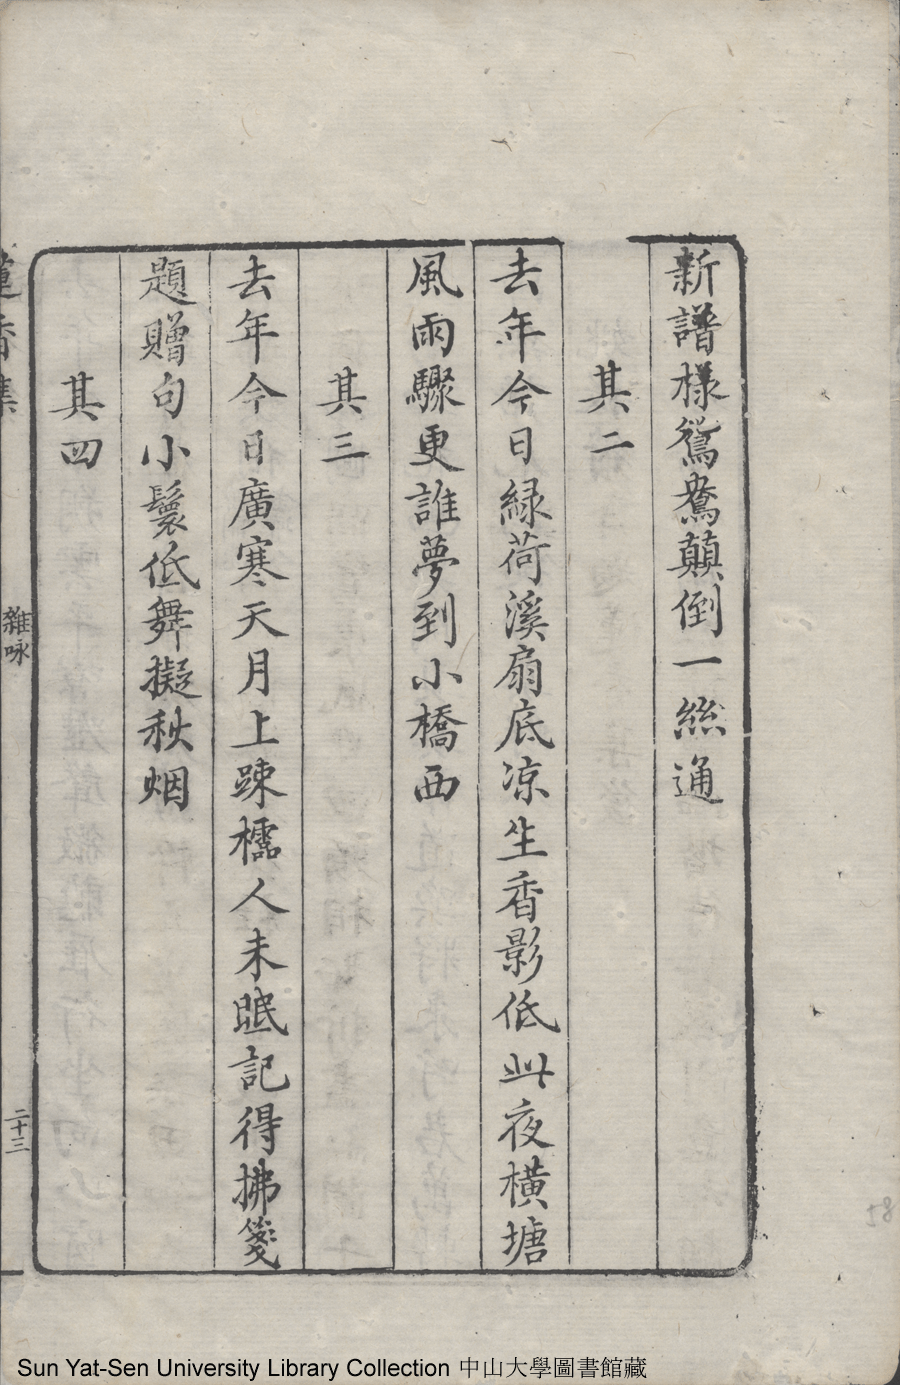 新譜樣鴛鴦顛倒一絲通
其二
去年今日緑荷溪扇底凉生香影低此夜橫塘
風雨驟更誰夢到小橋西
其三
去年今日廣寒天月上踈櫺人未眠記得拂箋
題贈句小鬟低舞擬秋烟
其四
香集
雜咏
二十三
85
Sun Yat-Sen University Library Collection 中山大學圖書館藏